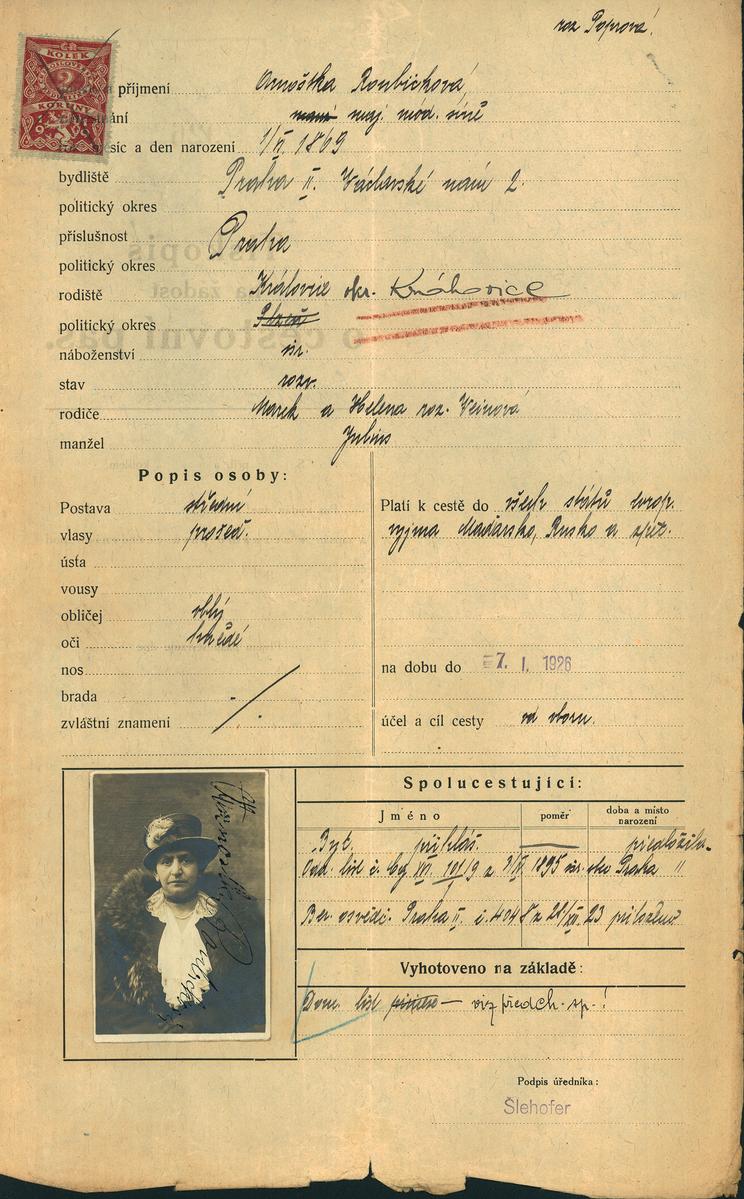 roz Poprová!
KOLEK
2
KORUNY
1919
a příjmení Arnoštka Roubíčková
maj. mód. síně
měsíc a den narození 1/VI 1869
bydliště Praha II. Václavské nám 2.
politický okres
příslušnost Praha
politický okres
rodiště Královice okr. Královice
politický okres Plzeň
náboženství isr.
stav rozv.
rodiče Marek a Helena roz. Weinová
manžel Julius
Popis osoby:
Postava střední
vlasy prošed.
ústa
vousy
obličej oblý
oči hnědé
nos
brada
zvláštní znamení
Platí k cestě do všech států evrop.
vyjma Maďarsko, Rusko a zpět.
na dobu do 7. I. 1926
účel a cíl cesty od oboru.
Spolucestující:
Jméno poměr doba a místo narození
Byt. přihláš. předložila
Odd. list č. 1895 isr. Praha
Ber. osvědč. Praha II. č. 4048 z 22/XII 23 přiloženo
Vyhotoveno na základě:
Dom. list — viz předch. sp.!
Podpis úředníka:
Šlehofer